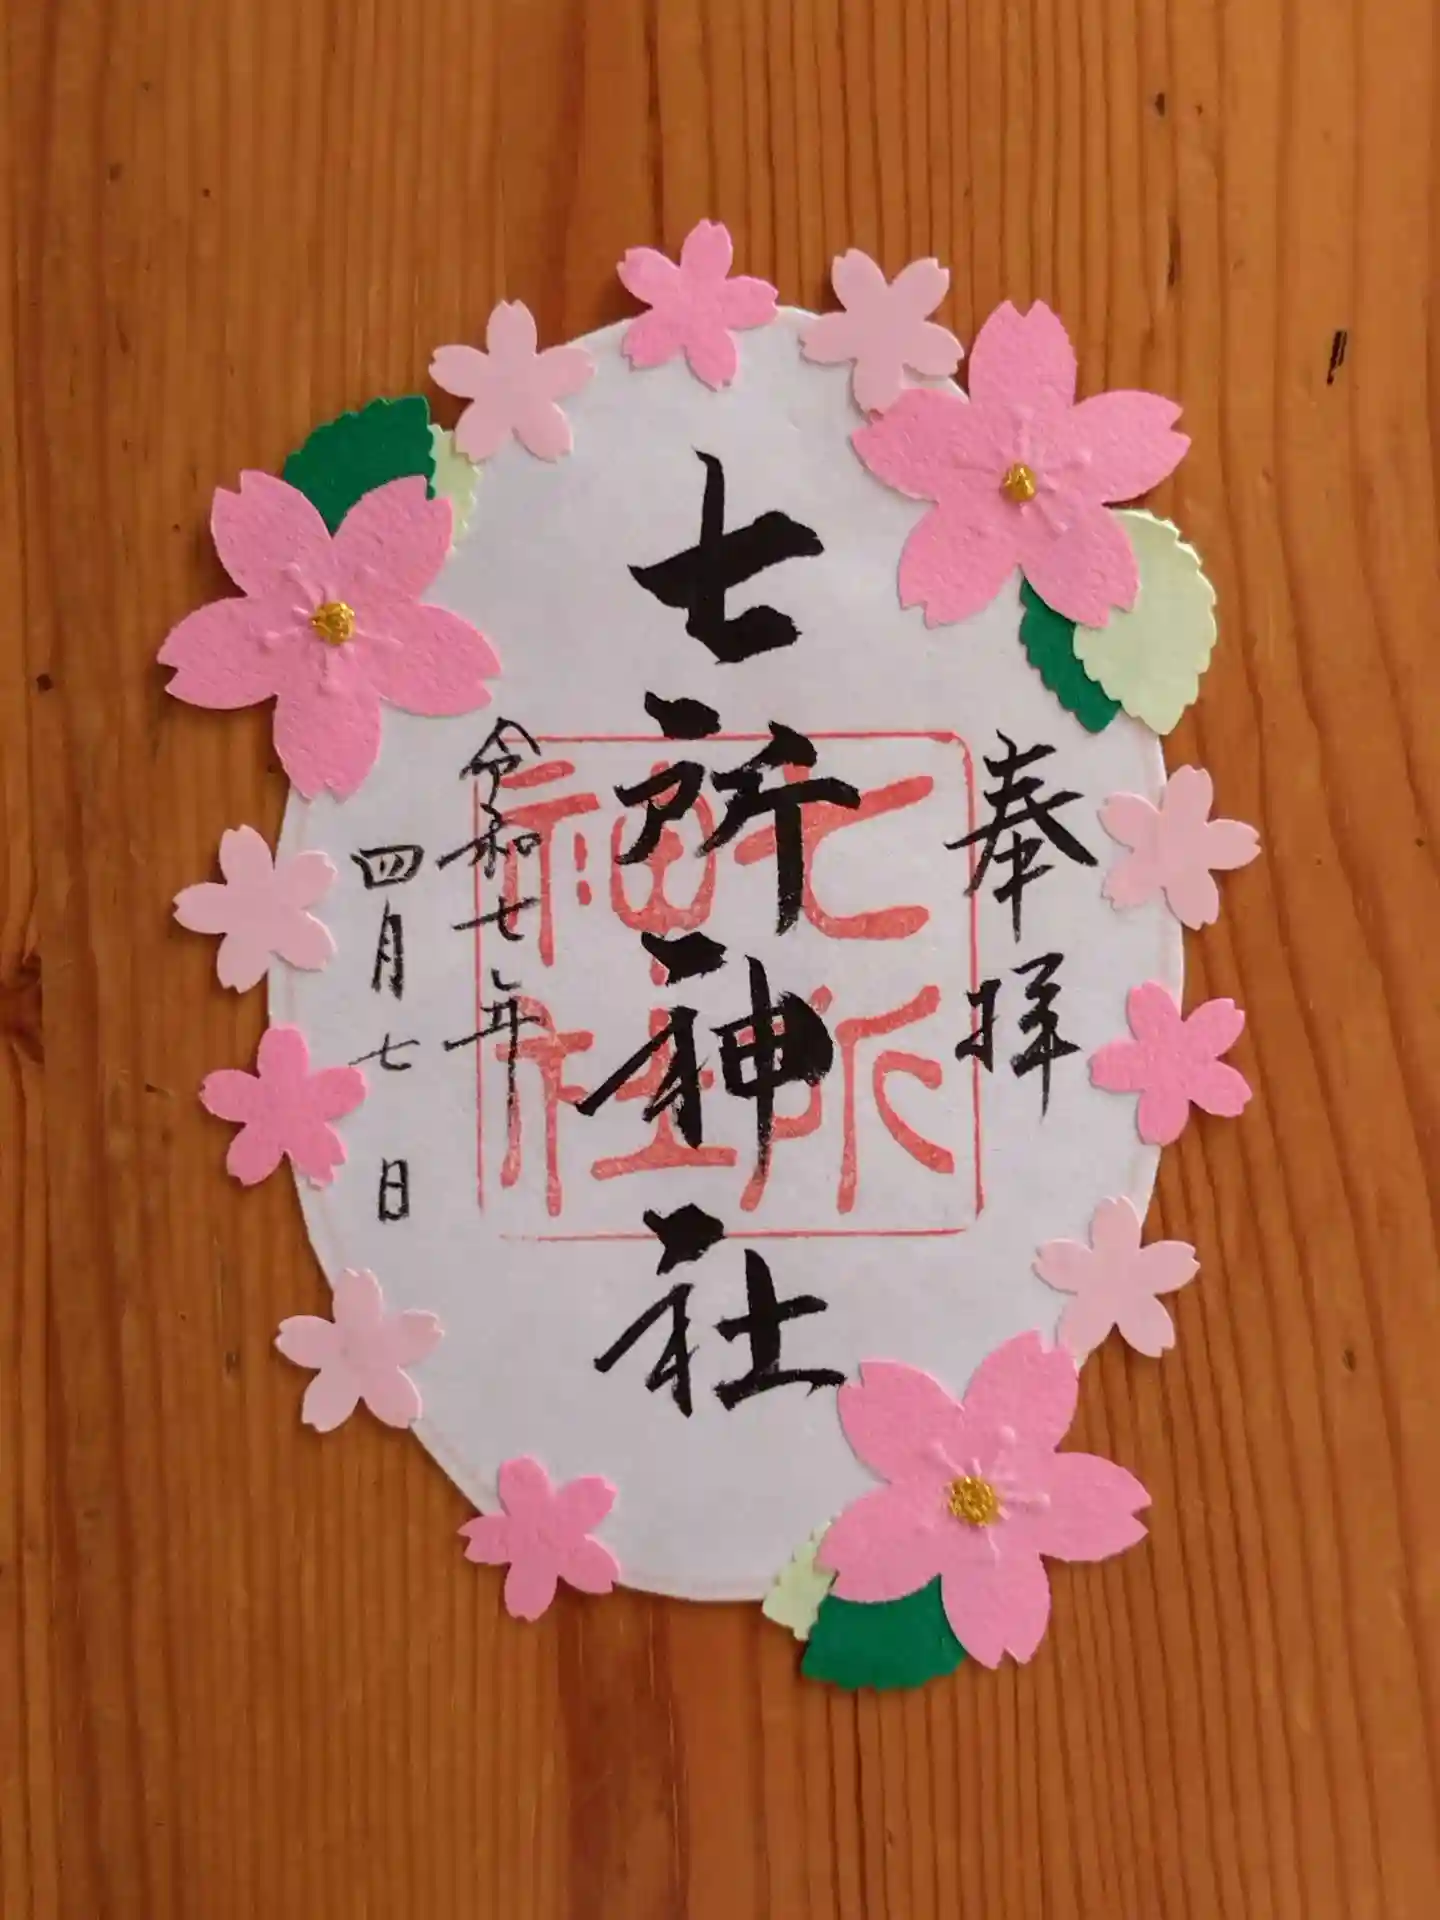 奉拝
七所神社
七所神社
令和七年
四月七日